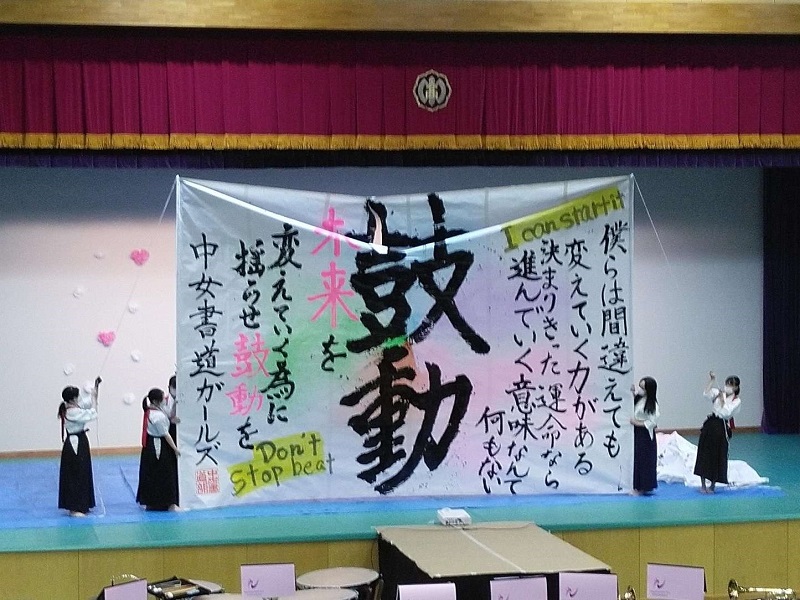 僕らは間違えても
変えていく力がある
I can start it
決まりきった運命なら
進んでいく意味なんて
何もない
鼓動
未来を
変えていく為に
揺らせ鼓動を
Don't
Stop beat
中女書道ガールズ